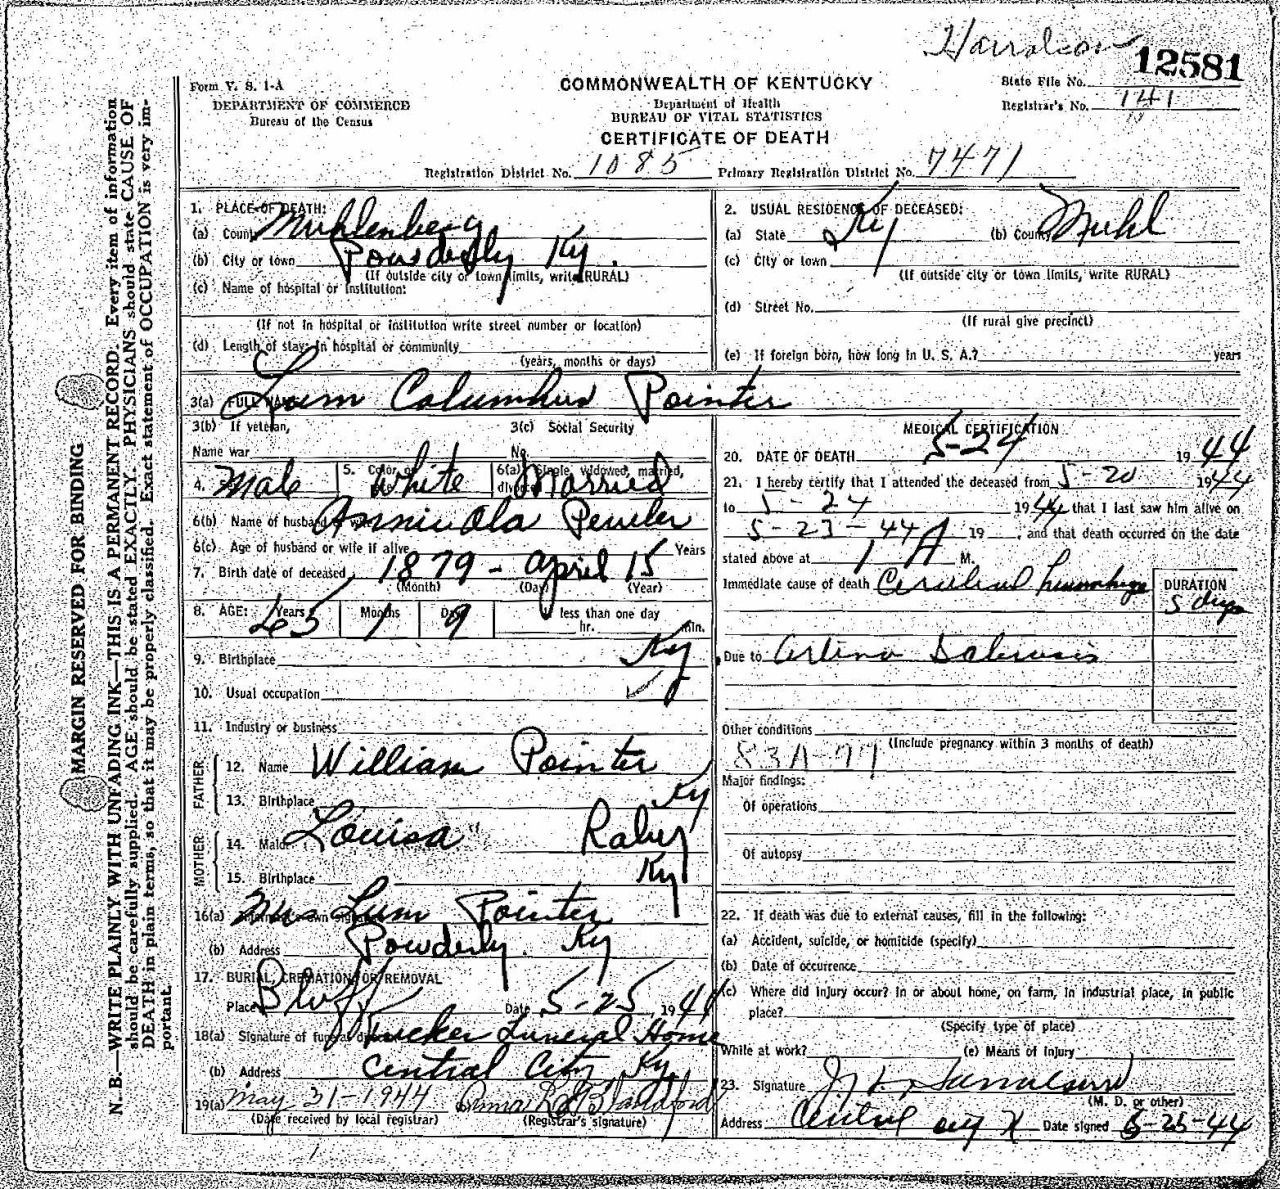 12581
Form V. S. 1-A
COMMONWEALTH OF KENTUCKY
State File No.
DEPARTMENT OF COMMERCE
Department of Health
Registrar's No. 141
Bureau of the Census
BUREAU OF VITAL STATISTICS
CERTIFICATE OF DEATH
Registration District No. 1085 Primary Registration District No. 7471
MARGIN RESERVED FOR BINDING
N. B.—WRITE PLAINLY WITH UNFADING INK—THIS IS A PERMANENT RECORD. Every item of information
should be carefully supplied. AGE should be stated EXACTLY. PHYSICIANS should state CAUSE OF
DEATH in plain terms, so that it may be properly classified. Exact statement of OCCUPATION is very im-
portant.
1. PLACE OF DEATH:
(a) County Muhlenberg
(b) City or town Powderly Ky.
(If outside city or town limits, write RURAL)
(c) Name of hospital or institution:
(If not in hospital or institution write street number or location)
(d) Length of stay: In hospital or community
(years, months or days)
2. USUAL RESIDENCE OF DECEASED:
(a) State Ky (b) County Muhl
(c) City or town
(If outside city or town limits, write RURAL)
(d) Street No.
(If rural give precinct)
(e) If foreign born, how long in U. S. A.? years
3(a) FULL NAME Lum Columbus Pointer
3(b) If veteran, 3(c) Social Security
Name war No.
4. Male 5. Color or White 6(a) Single, widowed, married, Married
6(b) Name of husband or wife
6(c) Age of husband or wife if alive Years
7. Birth date of deceased 1879 - April 15
(Month) (Day) (Year)
8. AGE: Years 65 Months 1 Days 9 less than one day
hr. min.
9. Birthplace Ky
10. Usual occupation
11. Industry or business
FATHER
12. Name William Pointer
13. Birthplace Ky
MOTHER
14. Maid. Louisa Raby
15. Birthplace Ky
16(a) Informant's own signature Mrs Lum Pointer
(b) Address Powderly. Ky
17. BURIAL, CREMATION, OR REMOVAL
Place Date 5-25 1944
18(a) Signature of funeral director Tucker Funeral Home
(b) Address Central City Ky.
19(a) May 31-1944 Anna
(Date received by local registrar) (Registrar's signature)
MEDICAL CERTIFICATION
20. DATE OF DEATH 5-24 1944
21. I hereby certify that I attended the deceased from 5-20 1944
to 5-24 1944, that I last saw him alive on
5-23-44 19 , and that death occurred on the date
stated above at 1 A M.
Immediate cause of death Cerebral hemorrhage
DURATION
5 days
Due to
Other conditions
(Include pregnancy within 3 months of death)
83A-97
Major findings:
Of operations
Of autopsy
22. If death was due to external causes, fill in the following:
(a) Accident, suicide, or homicide (specify)
(b) Date of occurrence
(c) Where did injury occur? In or about home, on farm, in industrial place, in public
place?
(Specify type of place)
While at work? (e) Means of injury
23. Signature
(M. D. or other)
Address Central City Date signed 5-25-44